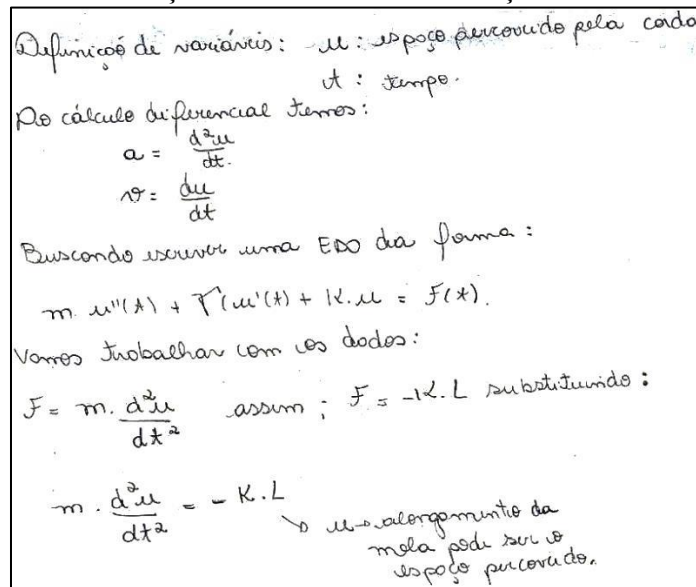 Definição de variáveis: u: espaço percorrido pela corda
t: tempo.
Do cálculo diferencial temos:
a = d²u/dt.
v = du/dt
Buscando escrever uma EDO da forma:
m. u''(t) + γ(u'(t) + K.u = F(t).
Vamos trabalhar com os dados:
F = m. d²u/dt² assim ; F = -K.L substituindo:
m. d²u/dt² = - K.L
u → alongamento da
mola pode ser o
espaço percorrido.